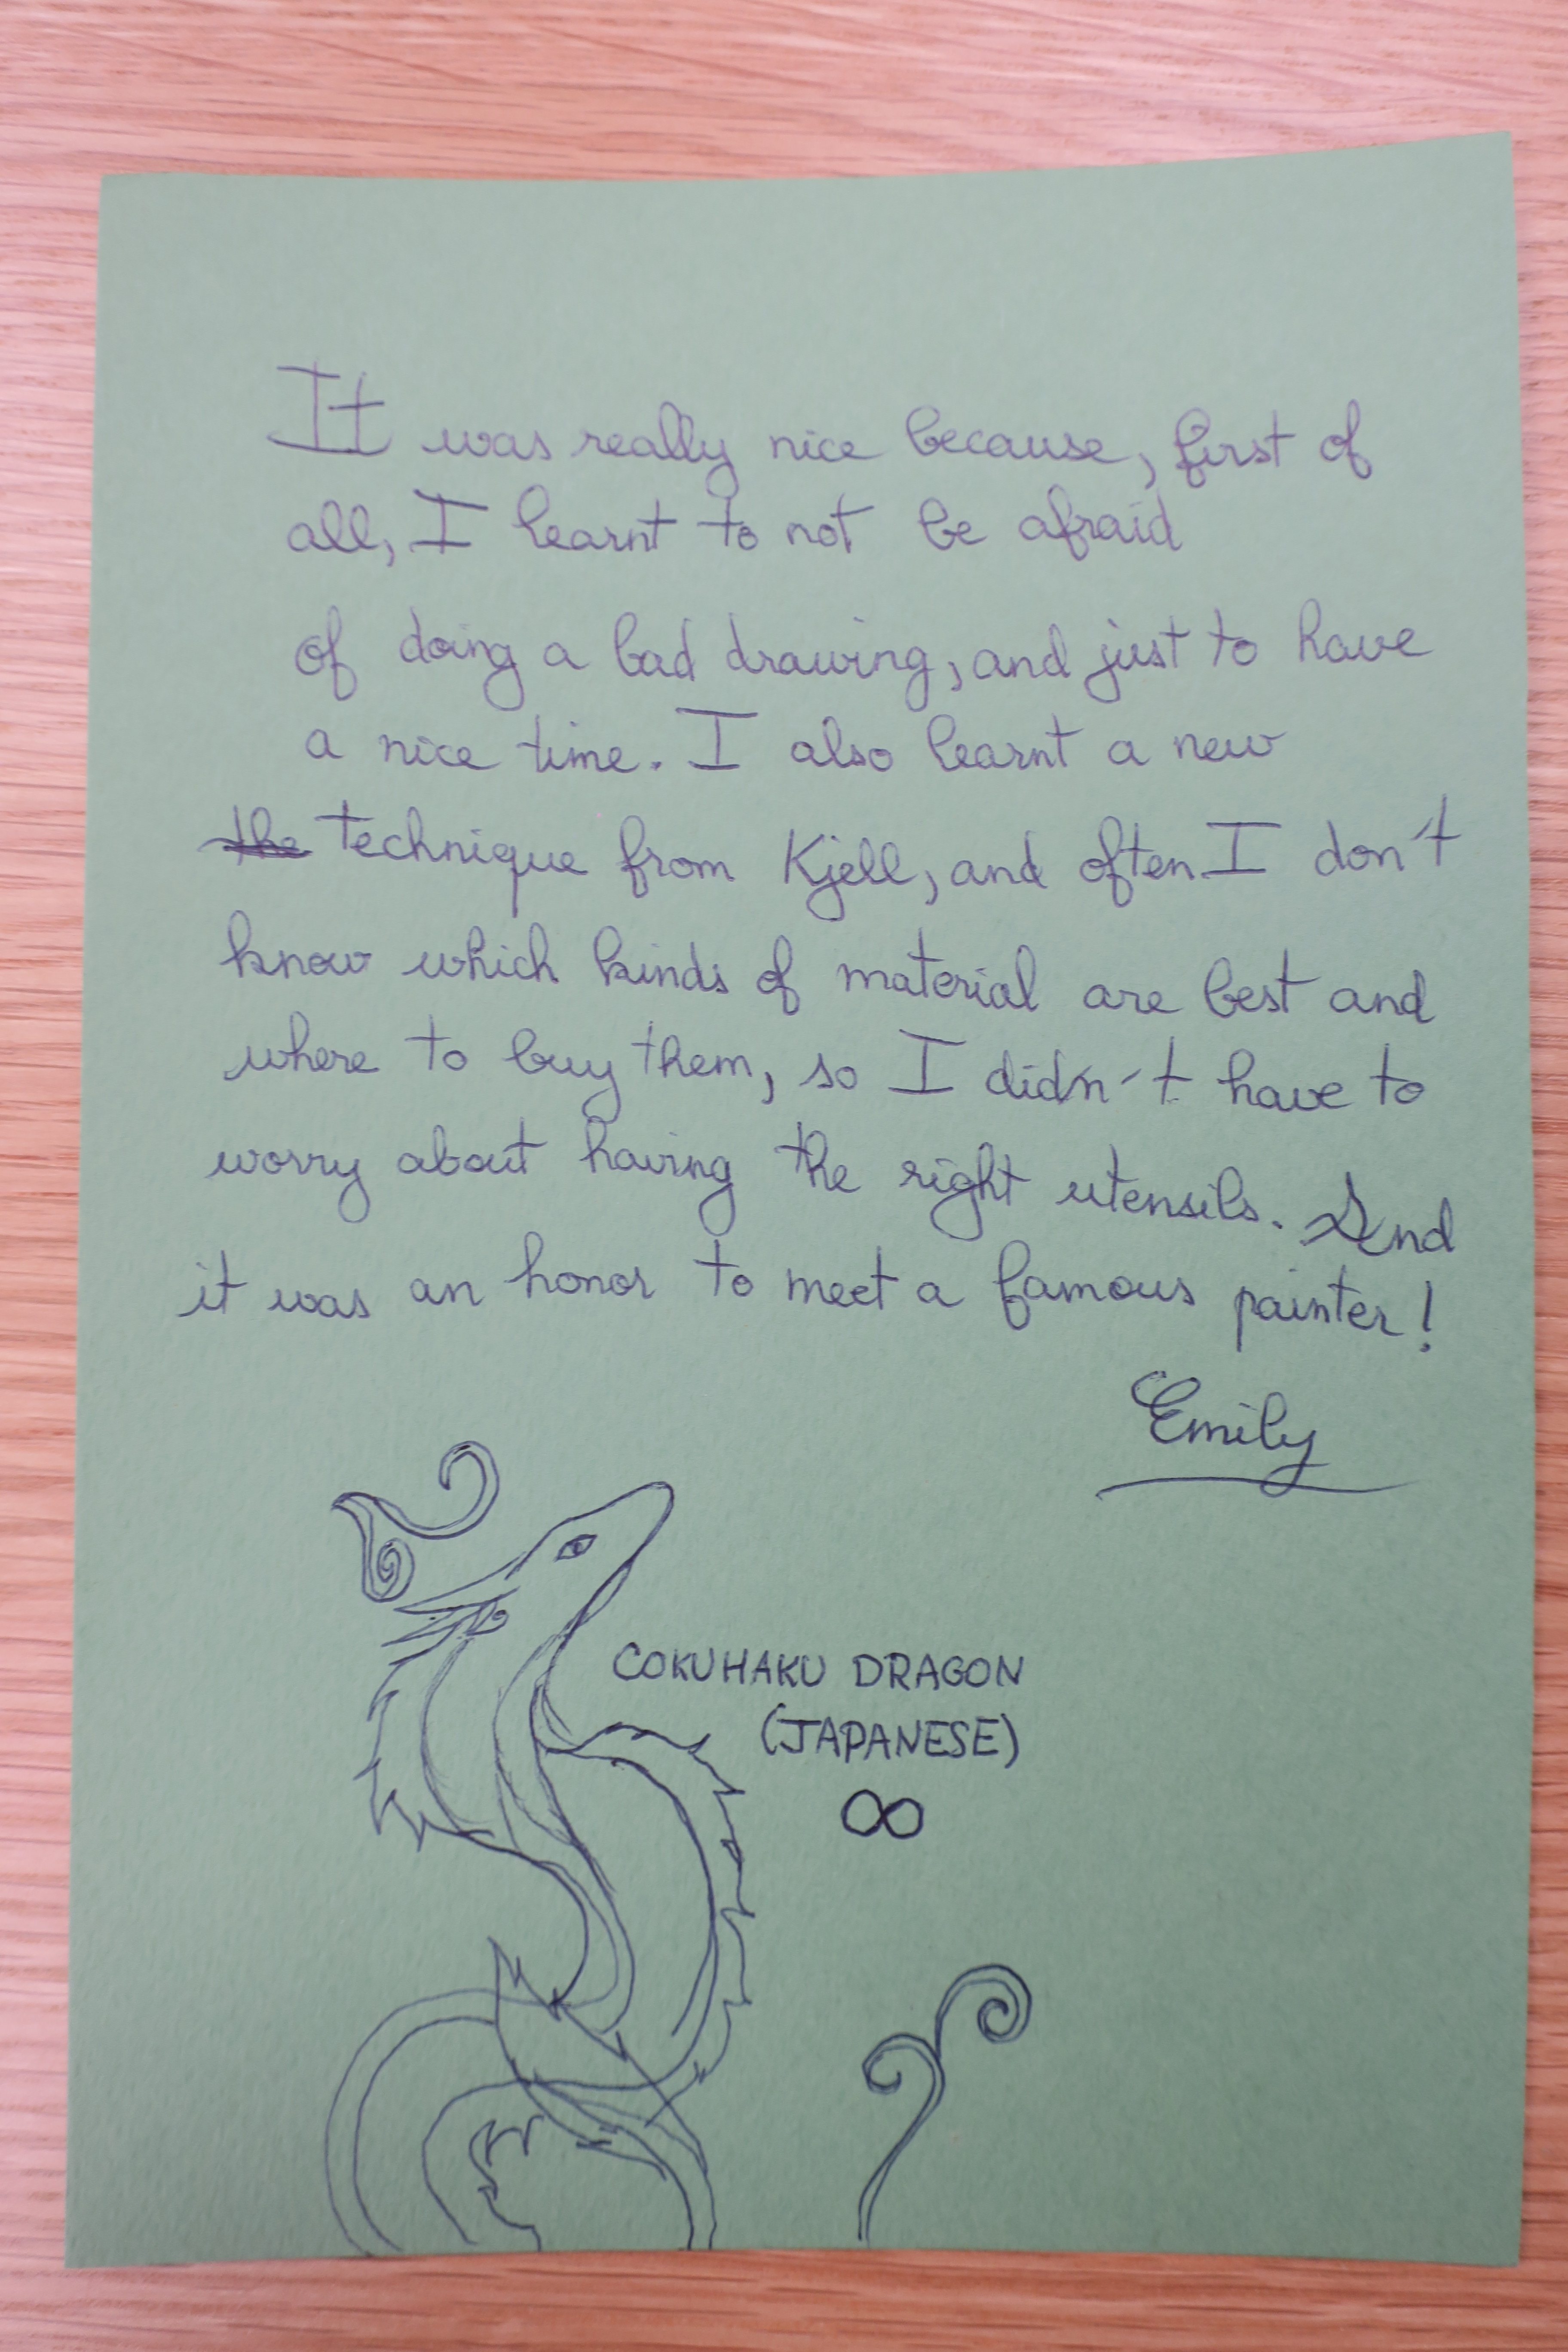 It was really nice because, first of
all, I learnt to not be afraid
of doing a bad drawing, and just to have
a nice time. I also learnt a new
the technique from Kjell, and often I don't
know which kinds of material are best and
where to buy them, so I didn't have to
worry about having the right utensils. And
it was an honor to meet a famous painter!
Emily
COKUHAKU DRAGON
(JAPANESE)
∞